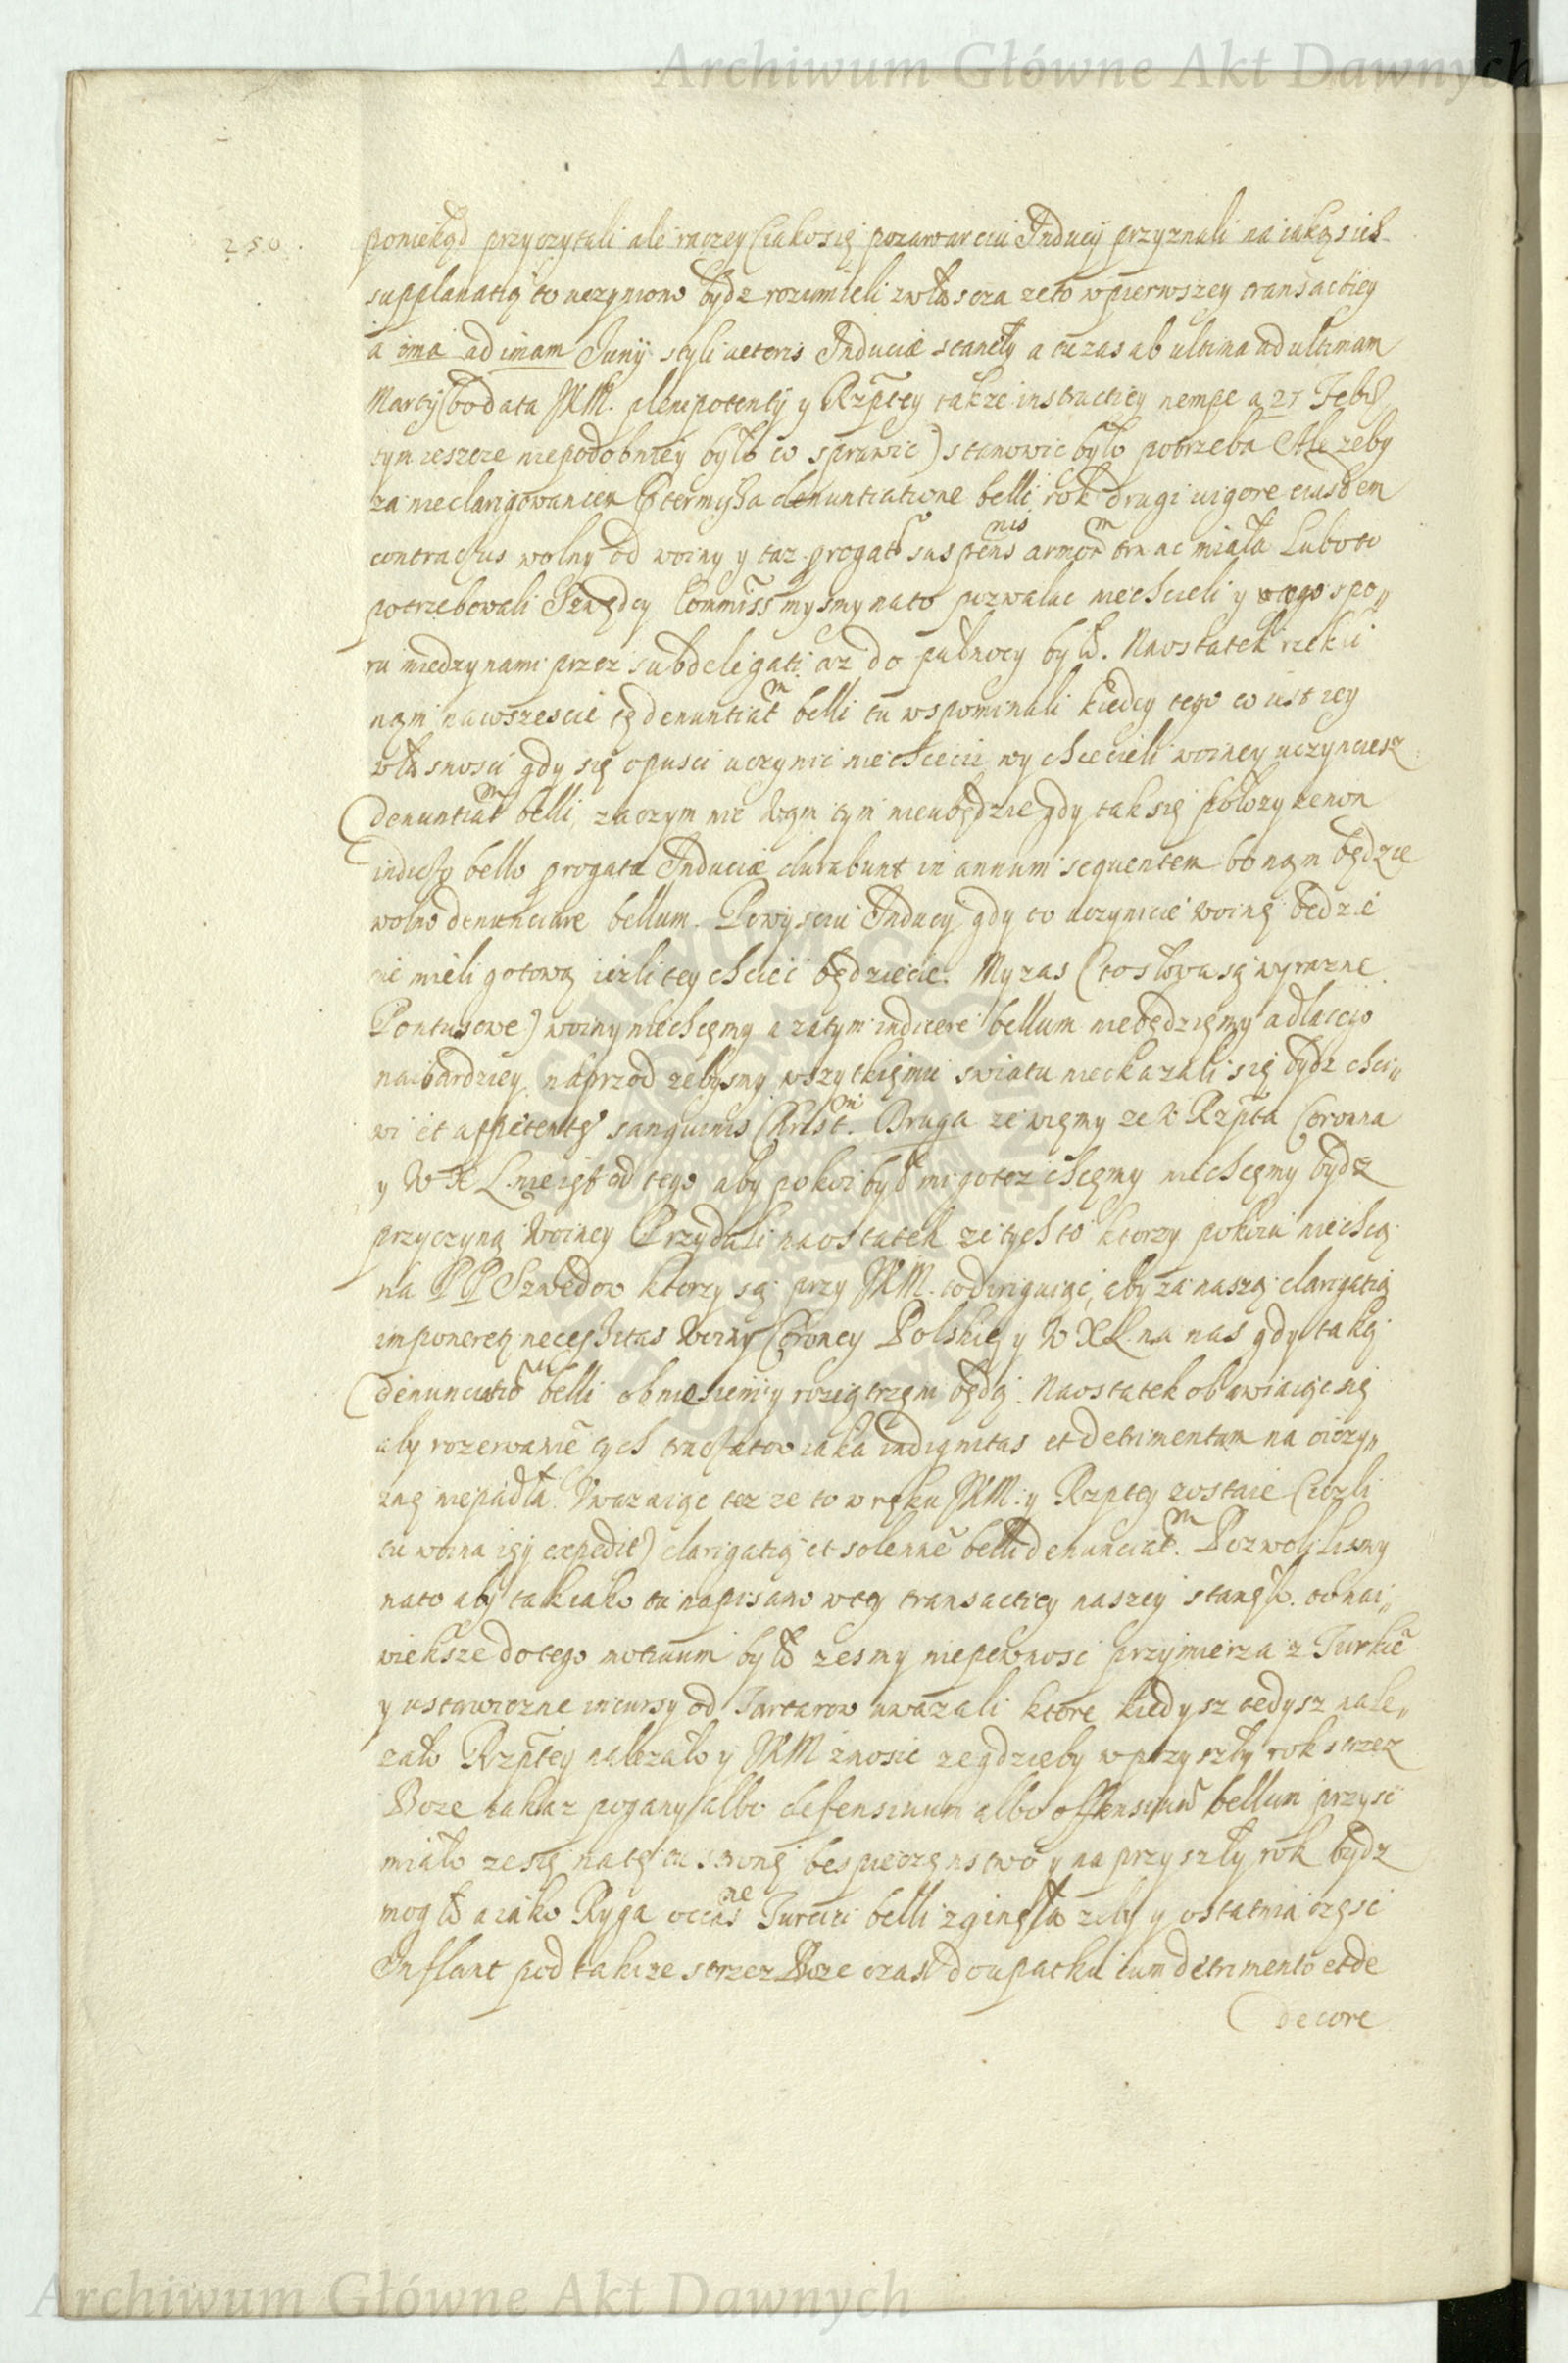 Archiwum Główne Akt Dawnych
250.
poniekąd przyczytali ale raczey (iako się po zawarciu Inducij przyznali na iakąsiś
supplanatią to uczyniono bydz rozumieli zwłascza ze to w pierwszey transactiey
a ima ad imam Junij styli veteris Induciæ stanęły a tu zas ab ultima ad ultimam
Martij (bo data JKM. plenipotentij y Rzptey także instructiey nempe a 27 Febr
tym ieszcze niepodobniey było co sprawic) stanowic było potrzeba Ale zeby
za nieclarigowaniem denuntiatione belli rok drugi vigore eiusdem
contractus wolny od woiny y taz progat suspens nis armor m trwac miała Luboto
potrzebowali Szwedcy Commiss mysmy na to pozwalac niechcieli y o tego spo„
ru miedzy nami przez subdelegati az do pułnocy było. Naostatek rzekli
nąm nawszescie tę denuntiat m belli tu wspominali kiedy tego co iest iey
własnosci gdy się opusci uczynic niechcecie wy chcecieli woiney uczynciesz
denuntiat m belli, zaczym nic wąm tym nieubędzie gdy tak się połozy ze non
indicto bello progatæ Induciæ durabunt in annum sequentem bo nąm będzie
wolno denunciare bellum. Po wysciu Inducij gdy to uczynicie woinę będzie
cie mieli gotową iezli tey chciec będziecie. My zas (to słowa są wyrazne
Pontusowe) woiny niechcęmy a zatym indicere bellum niebędzięmy a dla tego
naibardziey naprzod zebysmy wszytkięmu swiatu niekazali się bydz chci„
wi et appetentes sanguinis Christ ni. Druga ze więmy ze i Rzpta Coronna
y W X L nie iest od tego aby pokoi był my go tez chcęmy niechcęmy bydz
przyczyną woiney Przydali naostatek ze tych to ktorzy pokoiu niechcą
na PP Szwedow ktorzy są przy JKM. to dirigując, aby za naszą clarigatią
imponeret necessitas woiny Coroney Polskiey y W X L na nas gdy taką
denunciatio m belli obniesieni y rozıątrzęni będą. Naostatek obawiaiąc się
aby rozerwanie tych tractatow iaka indignitas et detrimentum na oiczy„
znę niepadła. Uwazaiąc tez ze to w ręku JKM: y Rzptey zostaie (iezli
tu woina iey expedit) clarigatią et solenne belli denunciat m. Pozwolilismy
na to aby tak iako tu napisano w tey transactiey naszey stanęło. to nai„
wieksze do tego motiuum było zesmy niepewnosc przymierza z Turkie
y ustawiczne incursy od Tartarow uwazali ktore kiedysz tedysz nale„
zało Rzptey nalezało y JKM znosic ze gdzieby w przyszły rok strzez
Boze takaz pogany albo defensiuum albo offensiuum bellum przysc
miało ze się na tę tu stronę bespieczęnstwo y na przyszły rok bydz
mogło a iako Ryga occas ne Turcici belli zginęła zeby y ostatnia częsc
Inflant pod takize strzez Boze czas do upadku cum detrimento et de
decore
Archiwum Główne Akt Dawnych